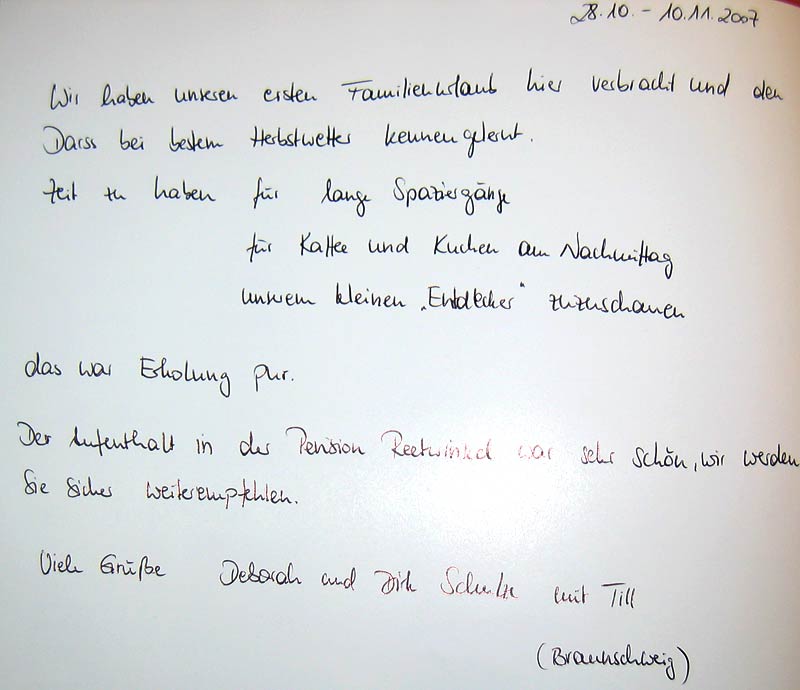 28.10. - 10.11.2007
Wir haben unseren ersten Familienurlaub hier verbracht und den
Darss bei bestem Herbstwetter kennengelernt.
Zeit zu haben für lange Spaziergänge
für Kaffee und Kuchen am Nachmittag
unserem kleinen „Entdecker" zuzuschauen
das war Erholung pur.
Der Aufenthalt in der Pension Reetwinkel war sehr schön, wir werden
Sie sicher weiterempfehlen.
Viele Grüße Deborah und Dirk Schulze mit Till
(Braunschweig)